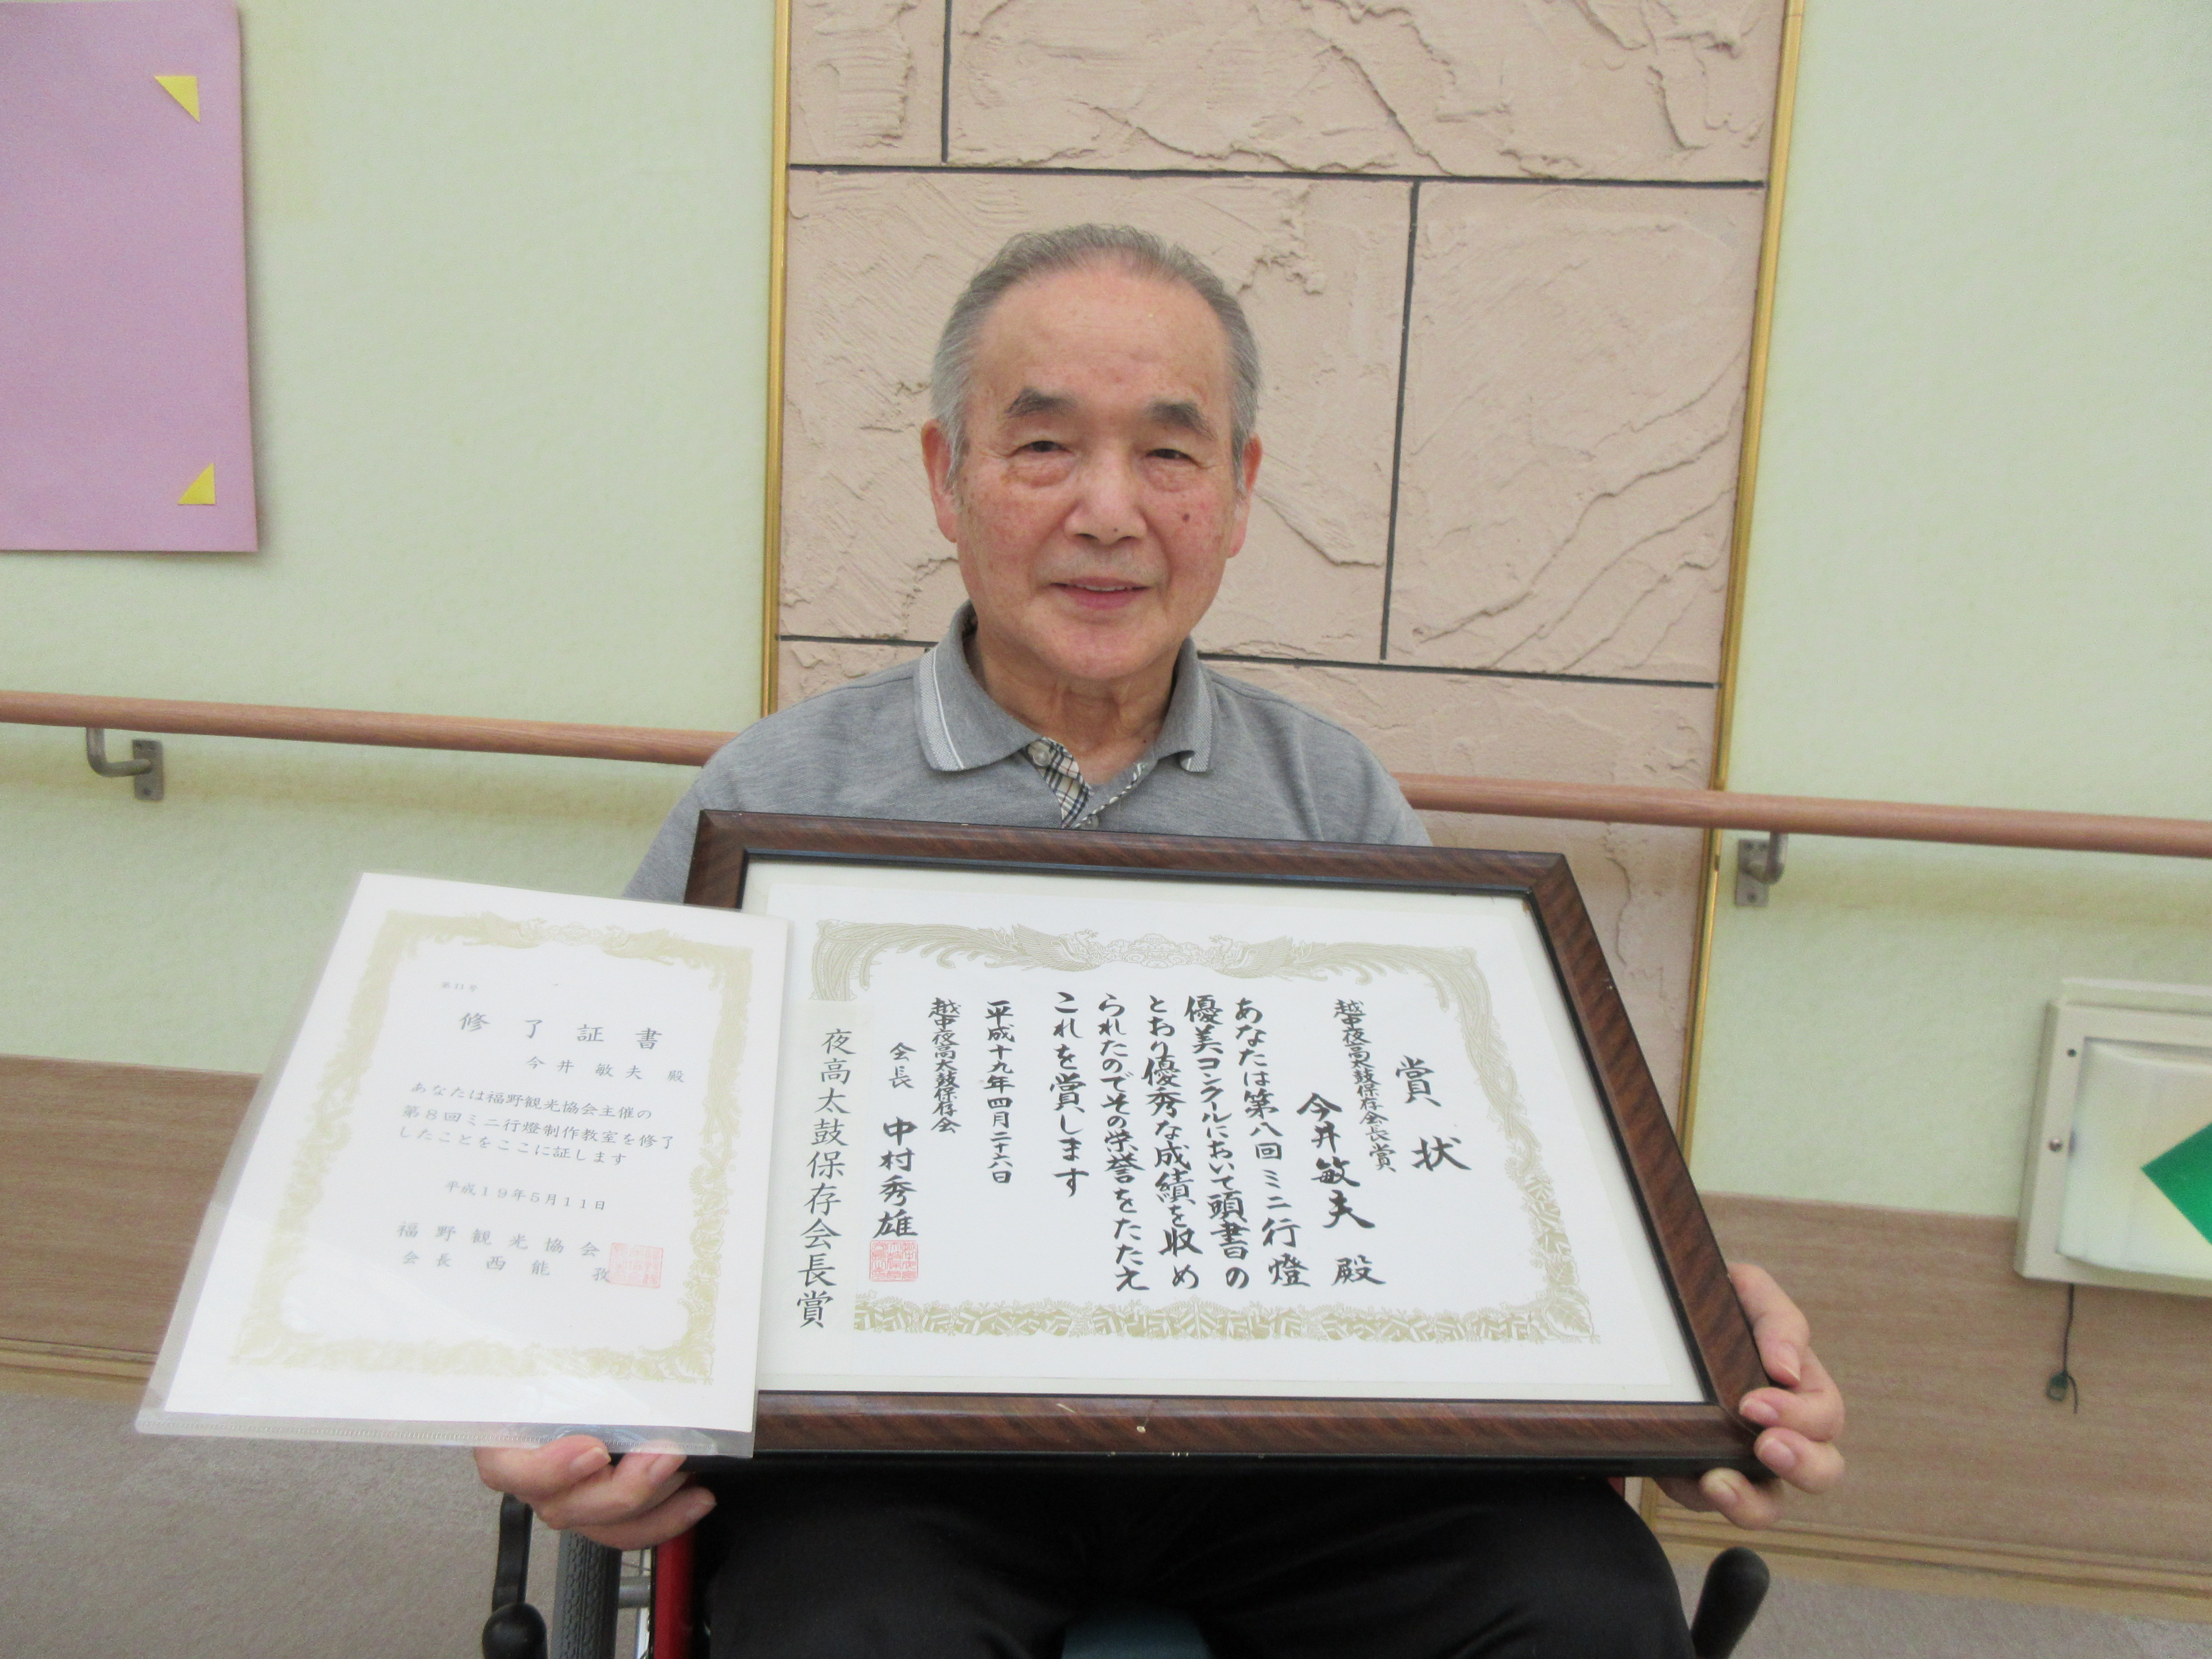 修了証書
今井敏夫 殿
あなたは福野観光協会主催の
第8回ミニ行燈制作教室を修了
したことをここに証します
平成19年5月11日
福野観光協会
会長 西能
賞状
越中夜高太鼓保存会長賞
今井敏夫 殿
あなたは第八回ミニ行燈
優美コンクールにおいて頭書の
とおり優秀な成績を収め
られたのでその栄誉をたたえ
これを賞します
平成十九年四月二十六日
越中夜高太鼓保存会
会長 中村秀雄
夜高太鼓保存会長賞